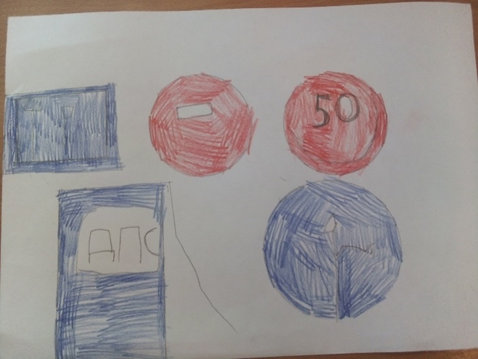 50
ДПС